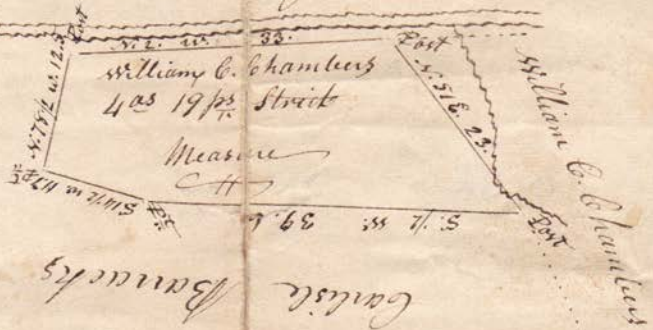 Post
N. 2. W. 33.
Post
William C. Chambers
4 as 19 ps Strict
Measure
N. 78 1/2 W. 12.3
S 14 1/2 W. 11.7 ps
N. 51 E. 23.
S. 1/2 W. 39.6
Post
William C. Chambers
Carlisle Barracks